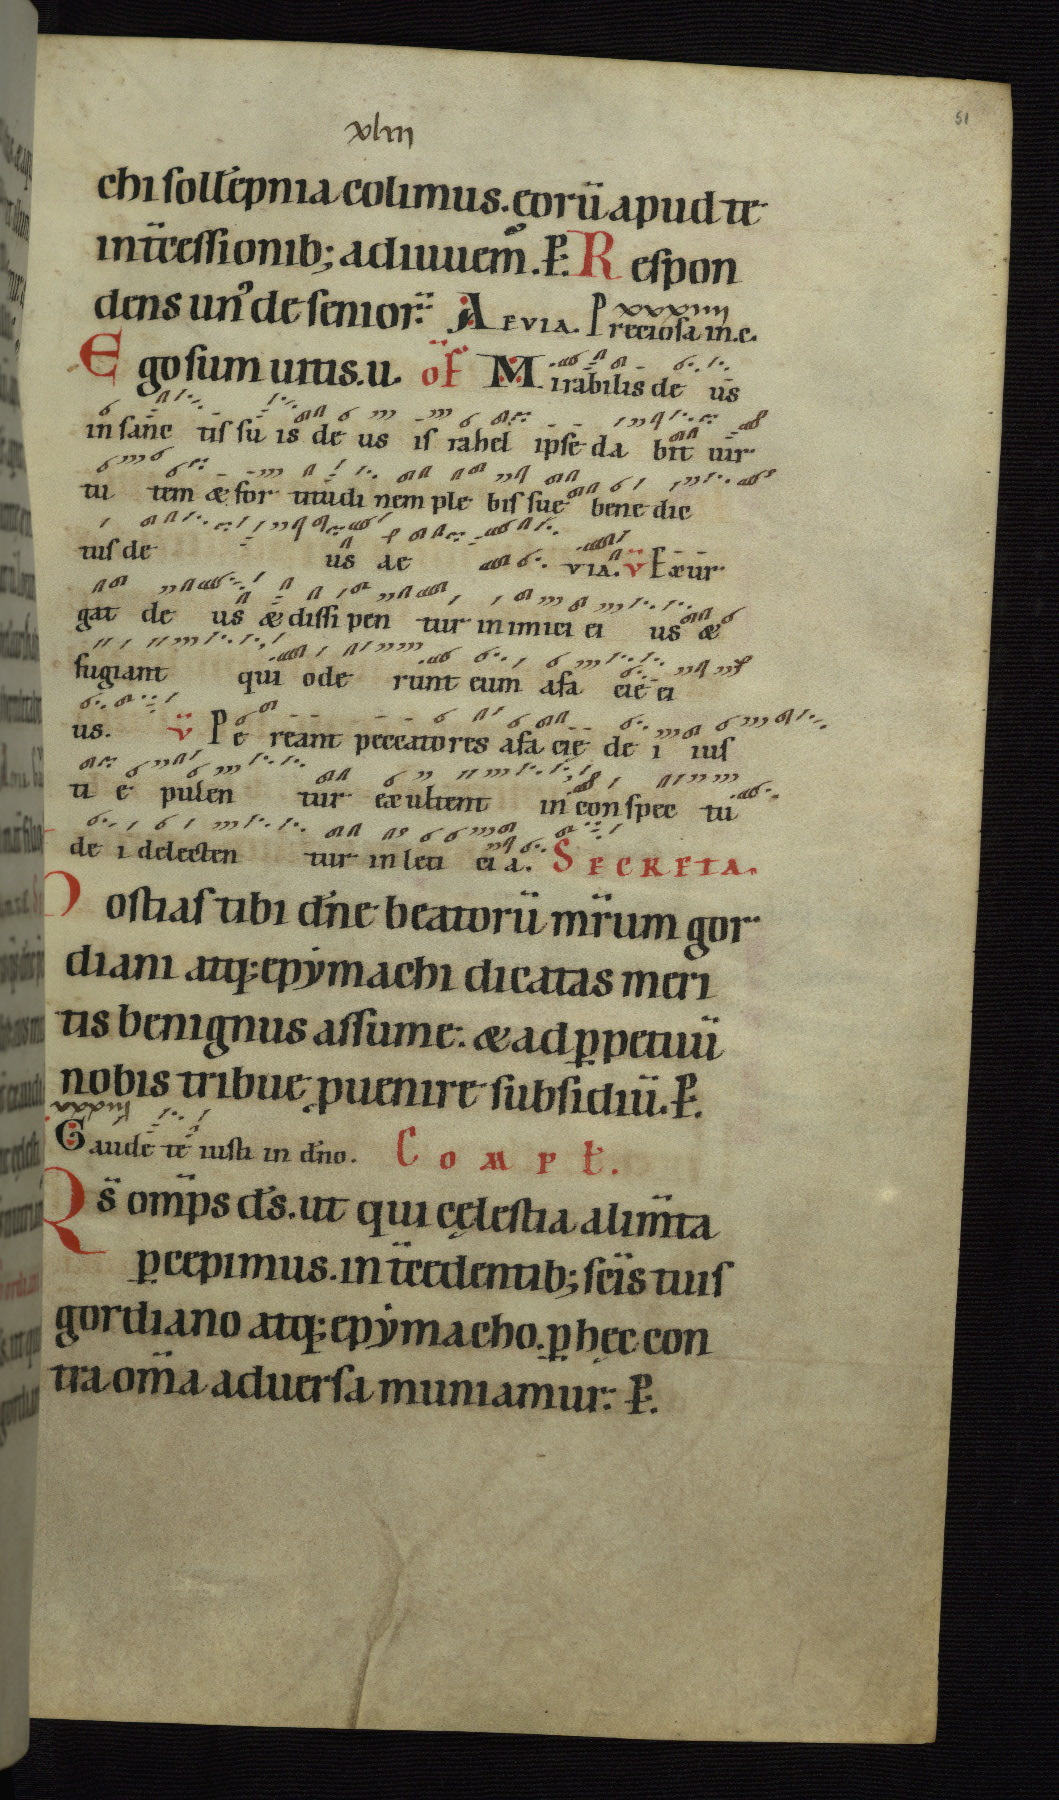 xliii
51
chi solle̅pnia colimus. eoru̅ apud te
int̅cessionib; adiuuem̅. P. Respon
dens un' de senior: Aevia. P̲reciosa in. c.
xxxxiiii
Ego sum uitis. u. of Mirabilis de us
in sanc tis su is de us is rahel ipse da bit uir
tu tem & for titudi nem ple bis sue bene dic
tus de us ae via. v̅ Exur
gat de us & dissi pen tur in imici ei us &
fugiant qui ode runt eum afa cie ei
us. v̅ Pe reant peccatores afa cię de i ius
ti e pulen tur exultent in conspec tu
de i delecten tur in leti ci a. Secreta.
ostias tibi dn̅e beatoru̅ mr̅um gor
diani atq; epẏmachi dicatas meri
tis benignus assume: & ad p̲petuu̅
nobis tribue puenire subsidiu̅. P.
Gaude te iusti in dn̅o. Compt̅.
Qs̅ omp̅s ds̅. ut qui cęlestia alim̅ta
p̲cepimus. int̅cedentib; sc̅is tuis
gordiano atq; epẏmacho. p̲ hęc con
tra om̅a aduersa muniamur: P.